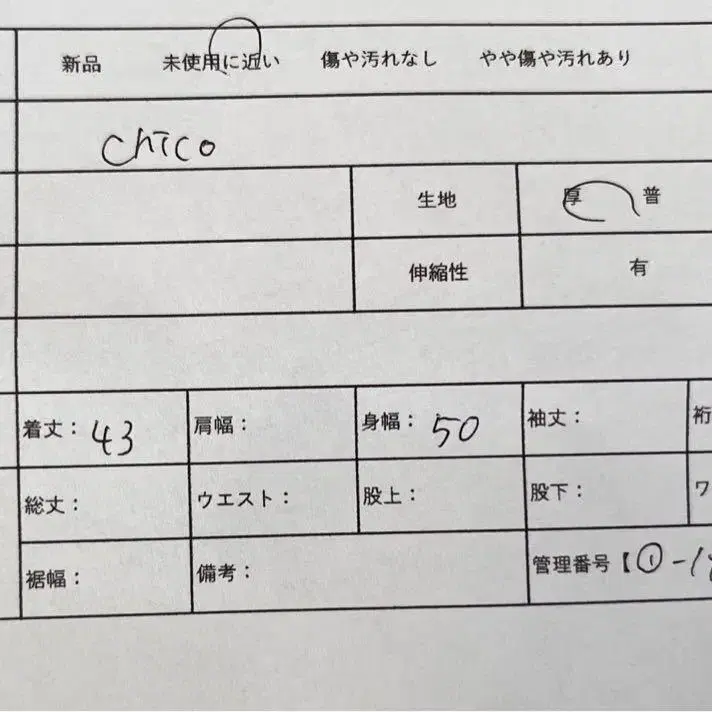 新品 未使用に近い 傷や汚れなし やや傷や汚れあり
chico
生地 厚 普
伸縮性 有
着丈： 43 肩幅： 身幅： 50 袖丈： 裄
総丈： ウエスト： 股上： 股下： ワ
裾幅： 備考： 管理番号【①-1